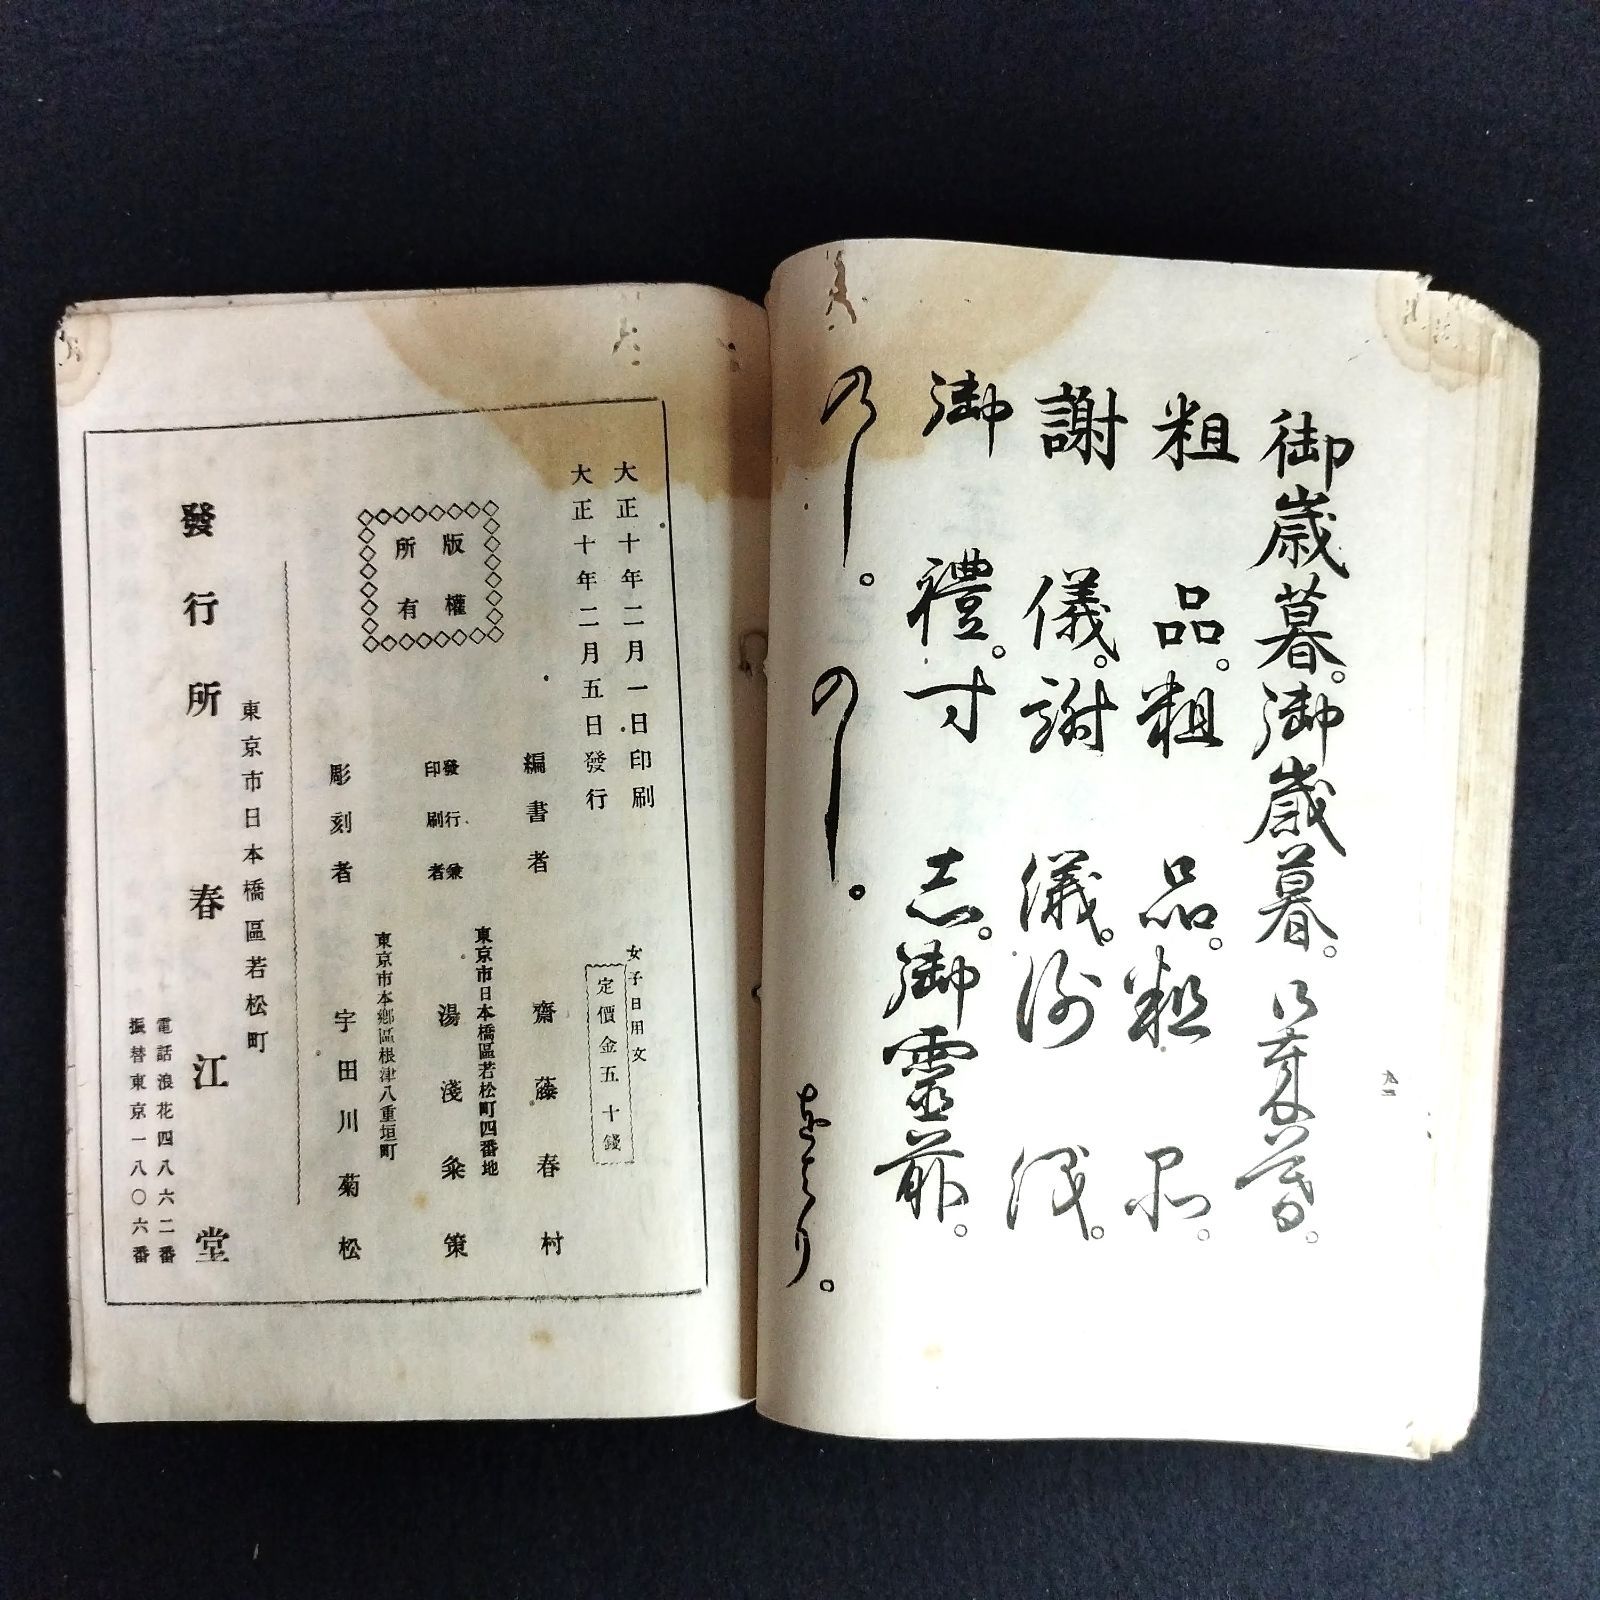 御歳暮。御歳暮。御歳暮。
粗品。粗品。粗品。
謝儀。謝儀。謝儀。
御禮。寸志。御靈前。
のし。のし。
大正十年二月一日印刷
大正十年二月五日發行
女子日用文
定價金五十錢
版權所有
編書者 齋藤春村
東京市日本橋區若松町四番地
發行兼印刷者 湯淺粂策
東京市本鄕區根津八重垣町
彫刻者 宇田川菊松
東京市日本橋區若松町
發行所 春江堂
電話浪花四八六二番
振替東京一八〇六番